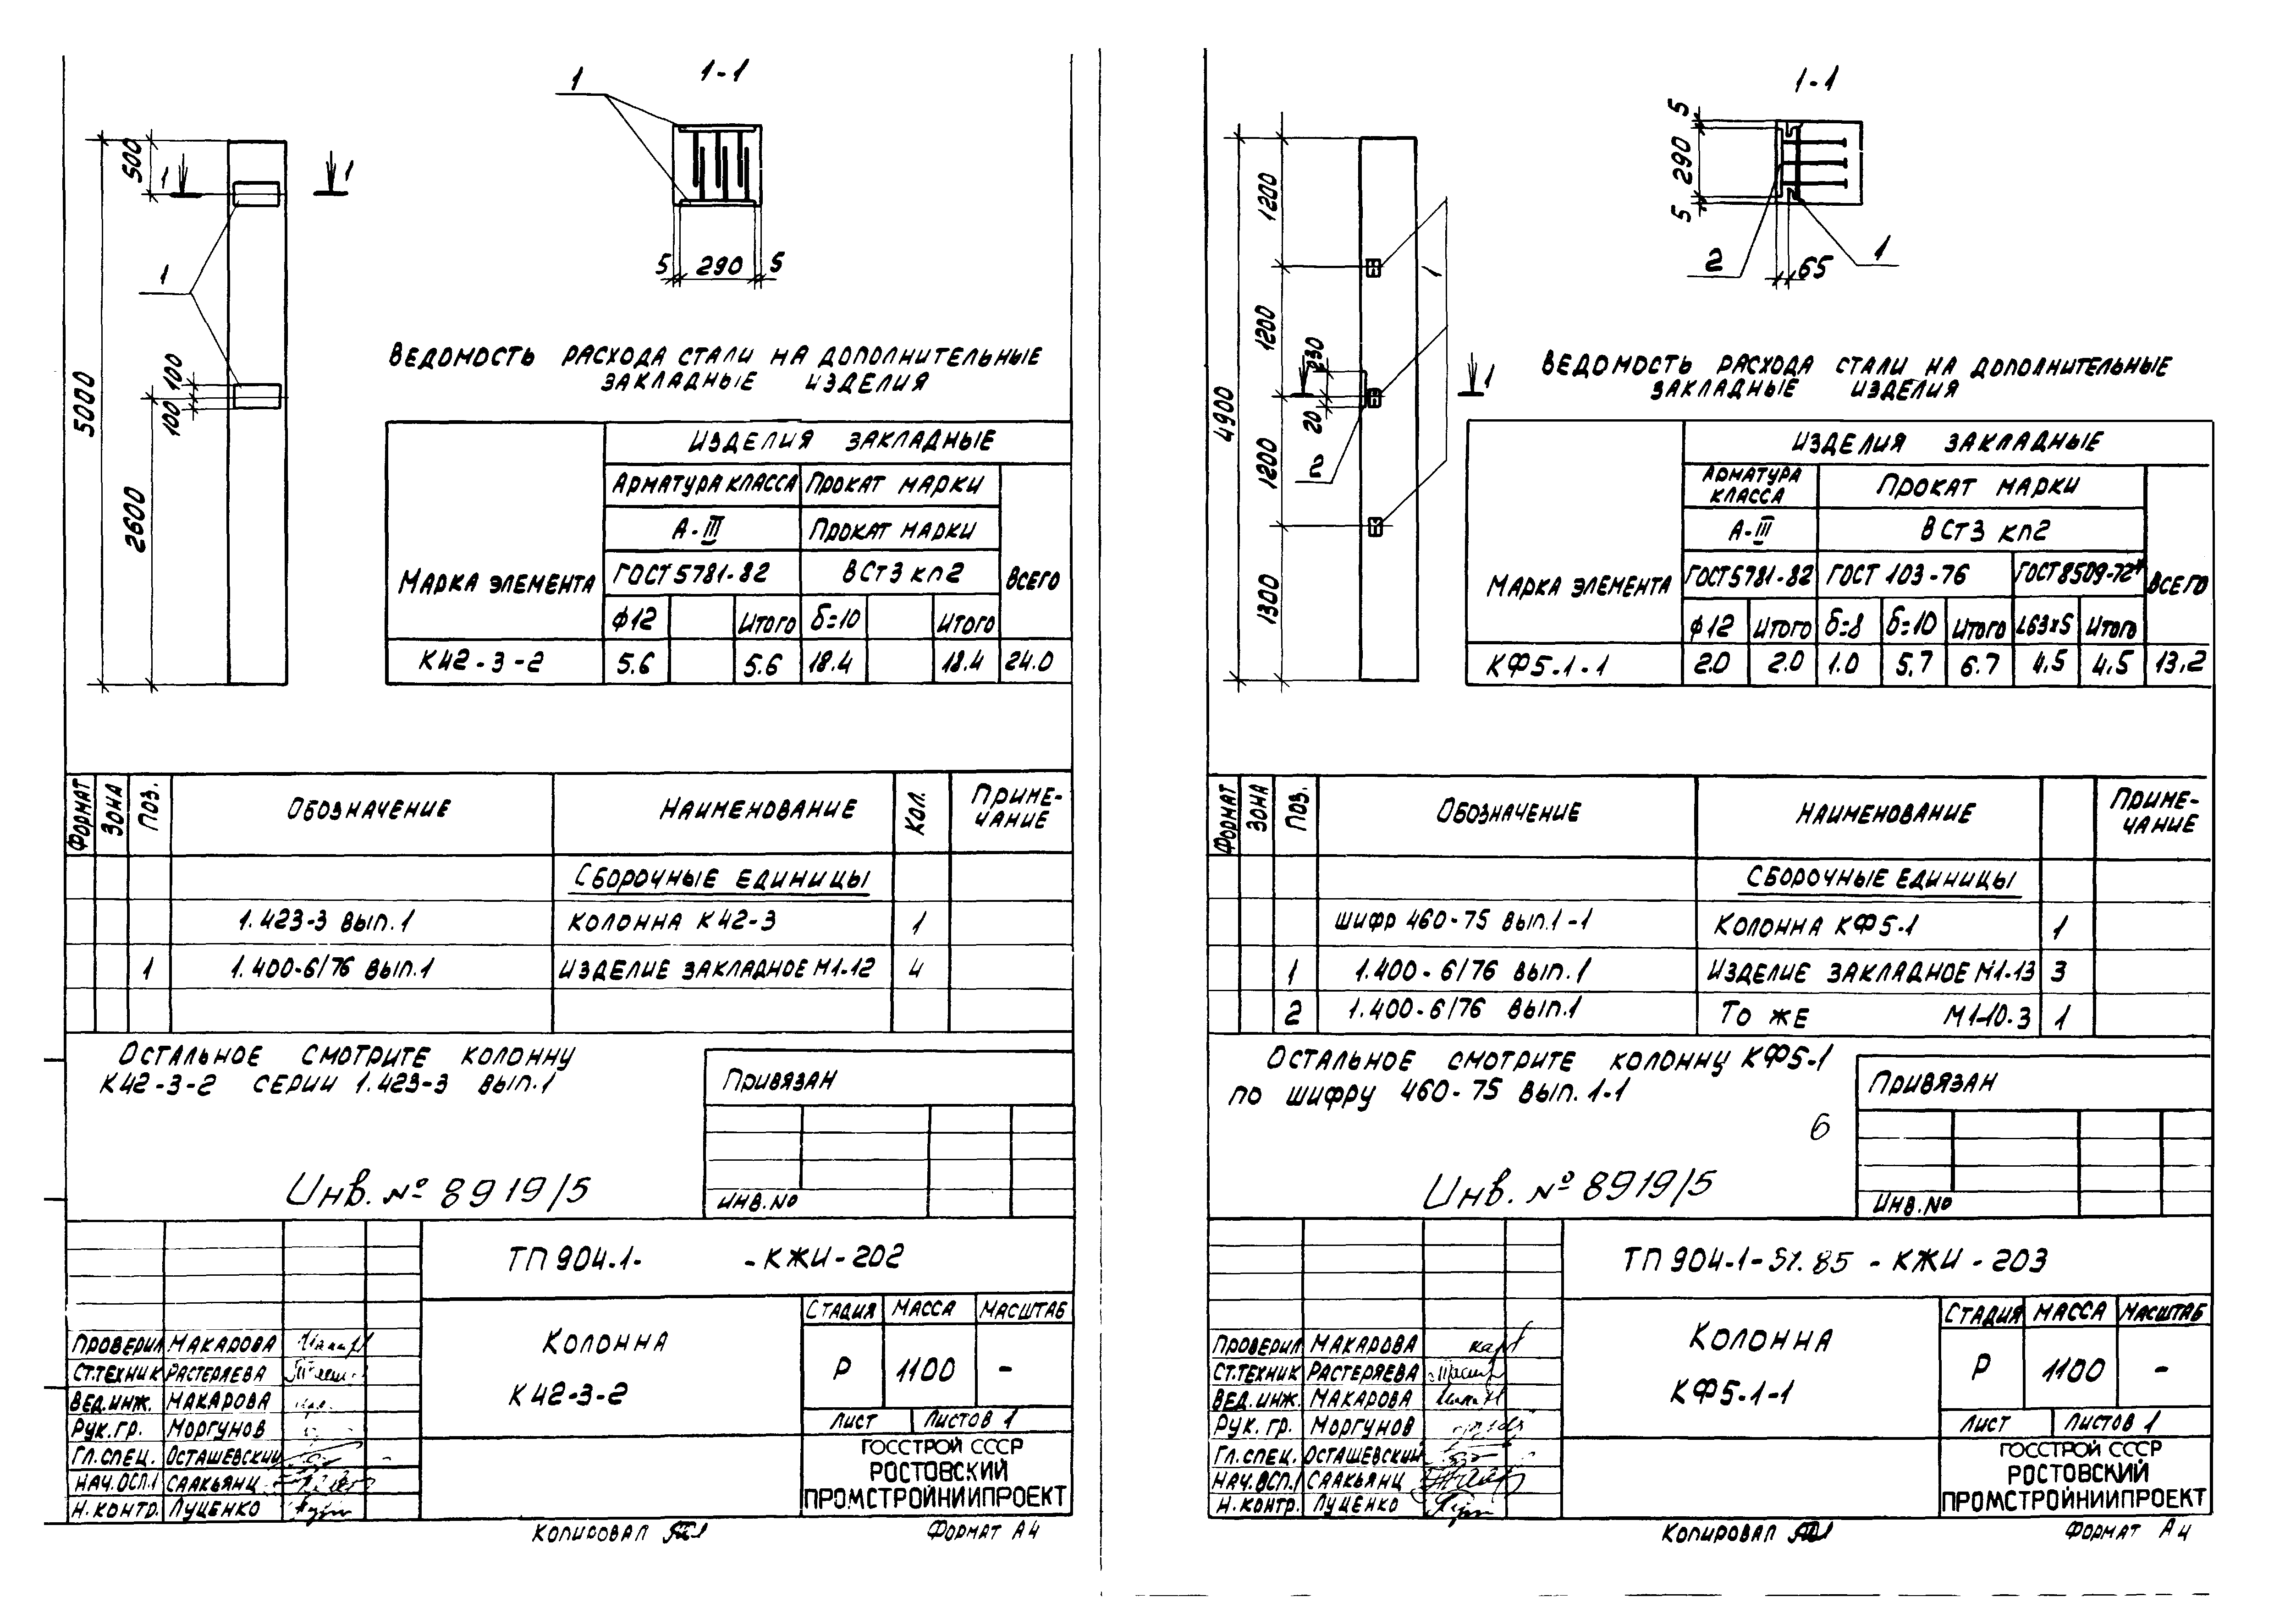 1
1-1
500
1
1
5
290
5
1
5000
100
100
2600
ВЕДОМОСТЬ РАСХОДА СТАЛИ НА ДОПОЛНИТЕЛЬНЫЕ
ЗАКЛАДНЫЕ ИЗДЕЛИЯ
МАРКА ЭЛЕМЕНТА
ИЗДЕЛИЯ ЗАКЛАДНЫЕ
АРМАТУРА КЛАССА ПРОКАТ МАРКИ
А-III ПРОКАТ МАРКИ
ГОСТ 5781-82 ВСт3 кп2 ВСЕГО
ф12 ИТОГО δ=10 ИТОГО
К42-3-2 5.6 5.6 18.4 18.4 24.0
ФОРМАТ ЗОНА ПОЗ. ОБОЗНАЧЕНИЕ НАИМЕНОВАНИЕ КОЛ. ПРИМЕ-
ЧАНИЕ
СБОРОЧНЫЕ ЕДИНИЦЫ
1.423-3 ВЫП.1 КОЛОННА К42-3 1
1 1.400-6/76 ВЫП.1 ИЗДЕЛИЕ ЗАКЛАДНОЕ М1-12 4
ОСТАЛЬНОЕ СМОТРИТЕ КОЛОННУ
К42-3-2 СЕРИИ 1.423-3 ВЫП.1
ПРИВЯЗАН
ИНВ.NО
Инв. № 8919/5
ТП 904-1- -КЖИ-202
КОЛОННА
К42-3-2
СТАДИЯ МАССА МАСШТАБ
Р 1100 -
ЛИСТ ЛИСТОВ 1
ПРОВЕРИЛ МАКАРОВА
СТ.ТЕХНИК РАСТЕРЯЕВА
ВЕД.ИНЖ. МАКАРОВА
РУК.ГР. МОРГУНОВ
ГЛ.СПЕЦ. ОСТАШЕВСКИЙ
НАЧ.ОСП.1 СААКЬЯНЦ
Н.КОНТР. ЛУЦЕНКО
ГОССТРОЙ СССР
РОСТОВСКИЙ
ПРОМСТРОЙНИИПРОЕКТ
КОПИРОВАЛ ФОРМАТ А4
1-1
5
290
5
2
65
1
1200
1200
1200
1300
4900
230
20
2
1
1
ВЕДОМОСТЬ РАСХОДА СТАЛИ НА ДОПОЛНИТЕЛЬНЫЕ
ЗАКЛАДНЫЕ ИЗДЕЛИЯ
МАРКА ЭЛЕМЕНТА
ИЗДЕЛИЯ ЗАКЛАДНЫЕ
АРМАТУРА
КЛАССА ПРОКАТ МАРКИ
А-III ВСт3 кп2
ГОСТ 5781-82 ГОСТ 103-76 ГОСТ 8509-72* ВСЕГО
ф12 ИТОГО δ=8 δ=10 ИТОГО L63х5 ИТОГО
КФ5-1-1 2.0 2.0 1.0 5.7 6.7 4.5 4.5 13.2
ФОРМАТ ЗОНА ПОЗ. ОБОЗНАЧЕНИЕ НАИМЕНОВАНИЕ ПРИМЕ-
ЧАНИЕ
СБОРОЧНЫЕ ЕДИНИЦЫ
ШИФР 460-75 ВЫП.1-1 КОЛОННА КФ5-1 1
1 1.400-6/76 ВЫП.1 ИЗДЕЛИЕ ЗАКЛАДНОЕ М1-13 3
2 1.400-6/76 ВЫП.1 ТО ЖЕ М1-10-3 1
ОСТАЛЬНОЕ СМОТРИТЕ КОЛОННУ КФ5-1
ПО ШИФРУ 460-75 ВЫП.1-1
6
ПРИВЯЗАН
ИНВ.NО
Инв. № 8919/5
ТП 904-1-51.85 - КЖИ - 203
КОЛОННА
КФ5-1-1
СТАДИЯ МАССА МАСШТАБ
Р 1100 -
ЛИСТ ЛИСТОВ 1
ПРОВЕРИЛ МАКАРОВА
СТ.ТЕХНИК РАСТЕРЯЕВА
ВЕД.ИНЖ. МАКАРОВА
РУК.ГР. МОРГУНОВ
ГЛ.СПЕЦ. ОСТАШЕВСКИЙ
НАЧ.ОСП.1 СААКЬЯНЦ
Н.КОНТР. ЛУЦЕНКО
ГОССТРОЙ СССР
РОСТОВСКИЙ
ПРОМСТРОЙНИИПРОЕКТ
КОПИРОВАЛ ФОРМАТ А4